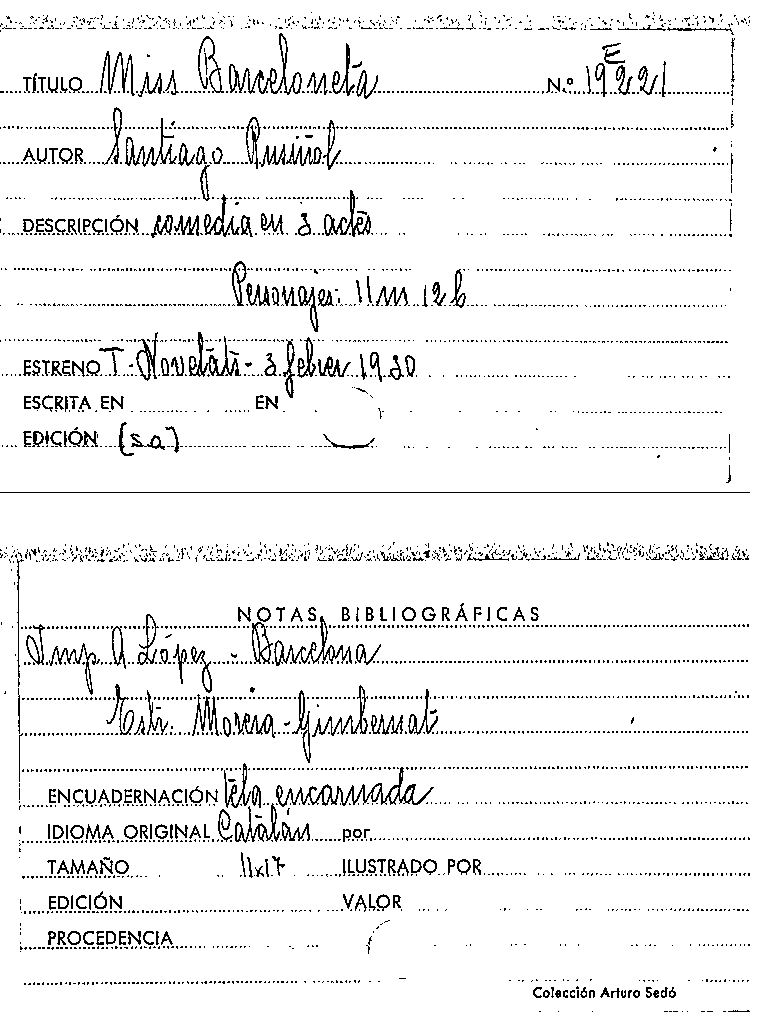 E
TÍTULO Miss Barceloneta N.º 19221
AUTOR Santiago Rusiñol
DESCRIPCIÓN comedia en 3 actes
Personajes: 11 m 12 h
ESTRENO T. Novetats - 3 febrer 1930
ESCRITA EN EN
EDICIÓN (s.a)
NOTAS BIBLIOGRÁFICAS
Imp A López - Barcelona
Estr. Morera - Gimbernat
ENCUADERNACIÓN tela encarnada
IDIOMA ORIGINAL Catalán por
TAMAÑO 11x17 ILUSTRADO POR
EDICIÓN VALOR
PROCEDENCIA
Colección Arturo Sedó